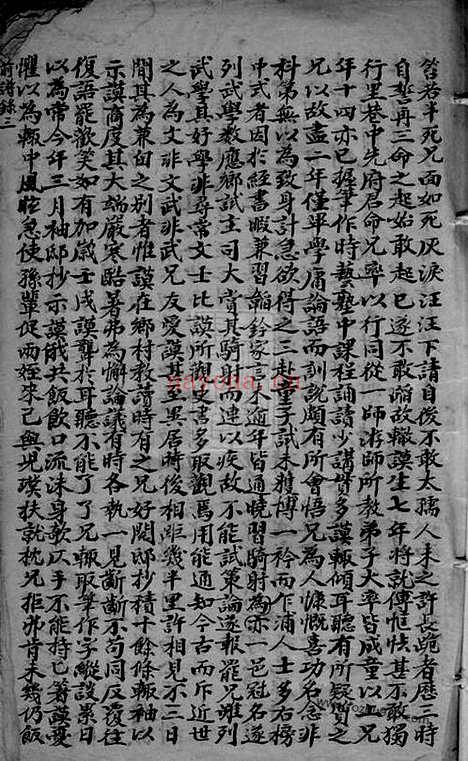 笞若半死兄面如死灰淚汪汪下請自後不敢太孺人未之許長跪者歷三時
自誓再三命之起始敢起已遂不敢蹈故轍謨生七年將就傅恇怯甚不敢獨
行里巷中先府君命兄率以行同從一師游師所教弟子大率皆成童以上兄
年十四亦已握筆作時藝塾中課程誦讀少講貫多謨輒傾耳聽有所疑質之
兄以故盡一年僅畢學庸論語而訓說頗有所會悟兄為人慷慨喜功名念非
科第無以為致身計急欲得之三赴童子試未獲博一衿而乍浦人士多右榜
中式者因於經書暇兼習韜鈐家言未逾年皆通曉習騎射為亦一邑冠名遂
列武學數應鄉試主司大賞其騎射而連以疾故不能試策論遂報罷兄雖列
武學其好學非尋常文士比謨所觀史書多取觀焉用能通知今古而斥近世
之人為文非文武非武兄友愛謨甚至異居時後相距幾半里許相見不三日
間其為兼旬之別者惟謨在鄉村教讀時有之兄好閱邸抄積十餘條輒袖以
示謨商度其大端嚴寒酷暑弗為懈論議有時各執一見斷斷不苟同反覆往
復語罷歡笑如有加歲壬戌謨聾於耳聽不能了了兄輒取筆作字縱談累日
以為常今年三月袖邸抄示謨俄共飯飲口流沫身欹以手不能持匕箸謨憂
懼以為輒中風眩急使孫輩促兩姪來已與兒璞扶就枕兄拒弗肯未幾仍飯
前譜錄三